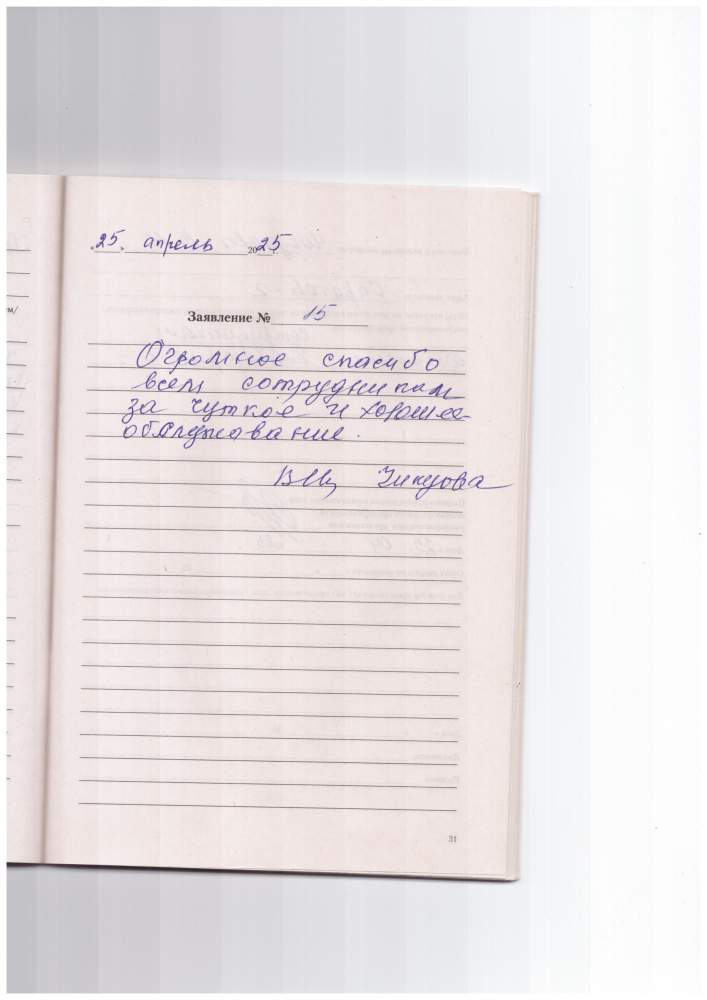 м/
25. апрель 2025 г.
Заявление № 15
Огромное спасибо
всем сотрудникам
за чуткое и хорошее
обслуживание.
31